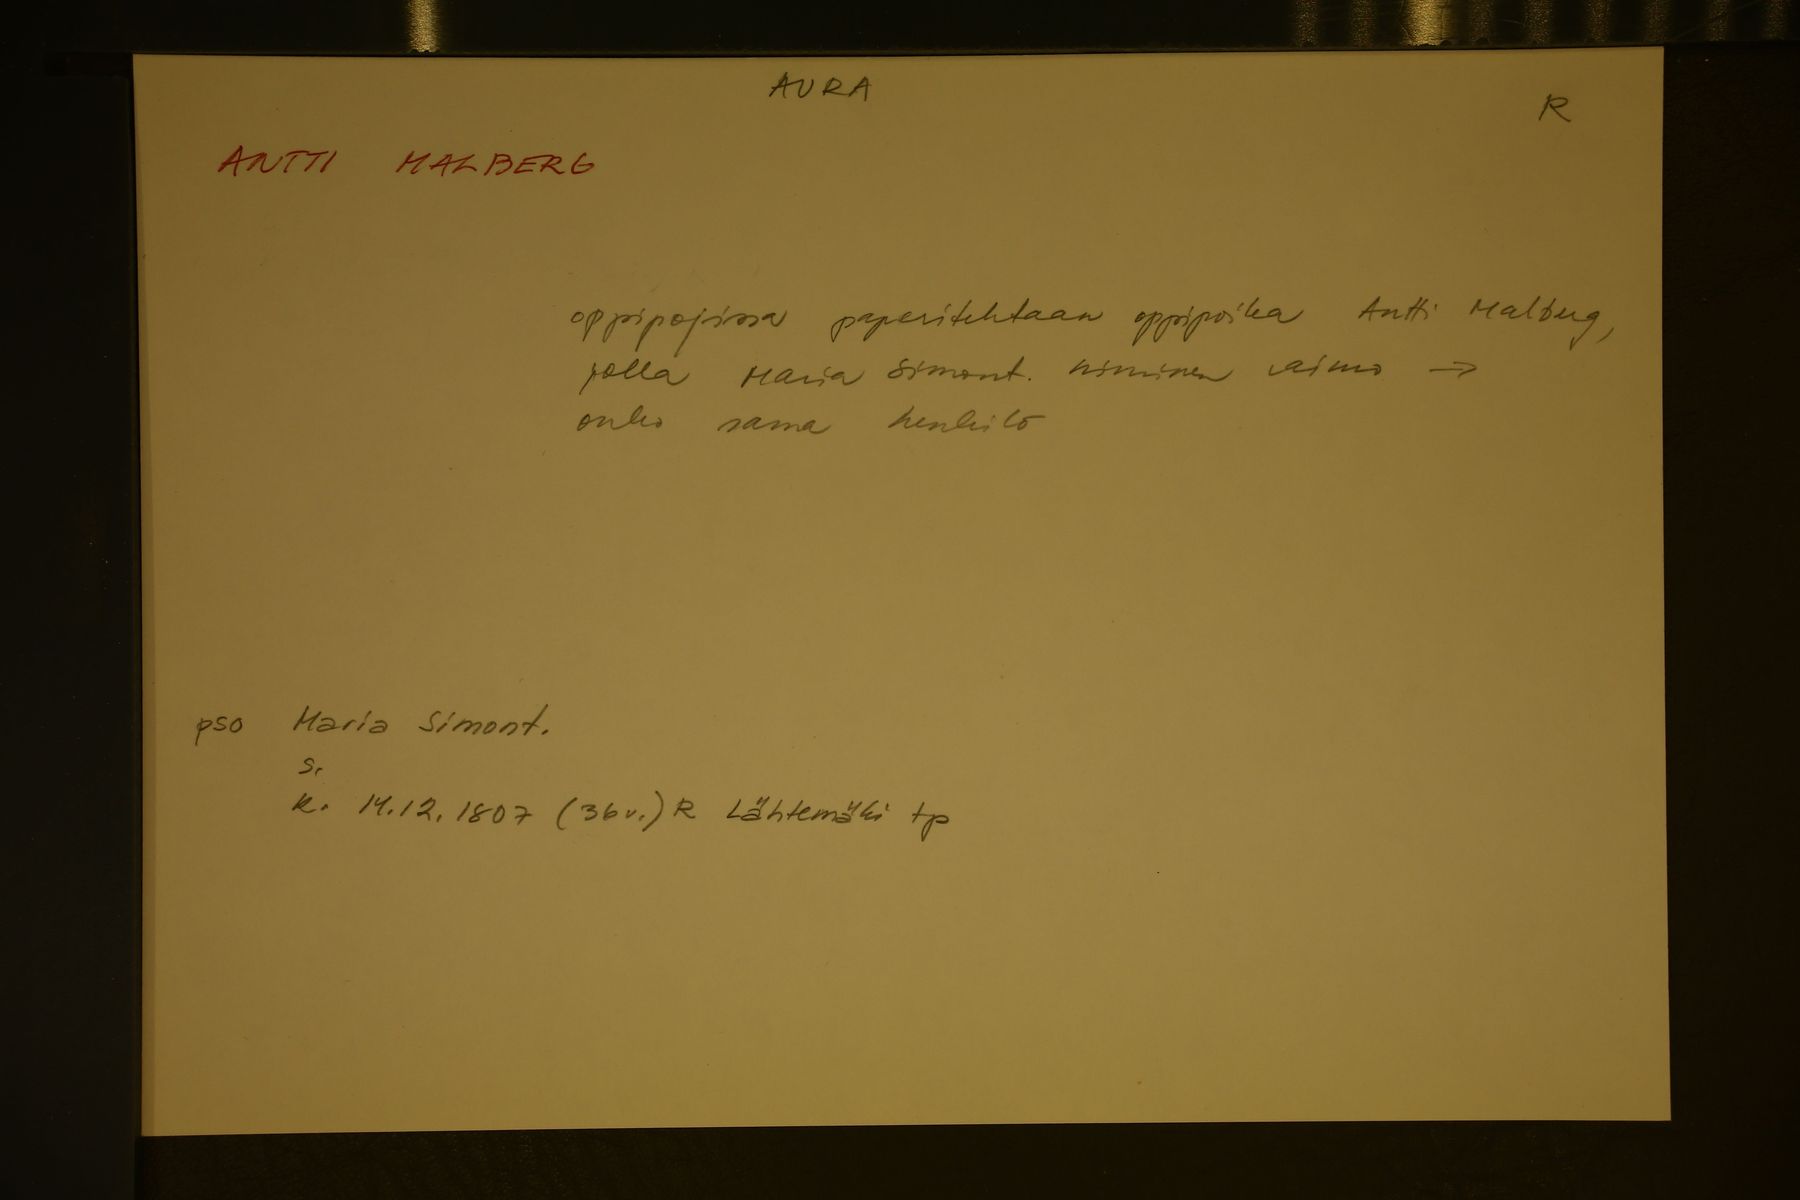 AURA
R
ANTTI MALBERG
oppipojissa paperitehtaan oppipoika Antti Malberg,
jolla Maria Simont. niminen vaimo →
onko sama henkilö
pso Maria Simont.
s.
k. 14.12.1807 (36 v.) R Lähtemäki tp